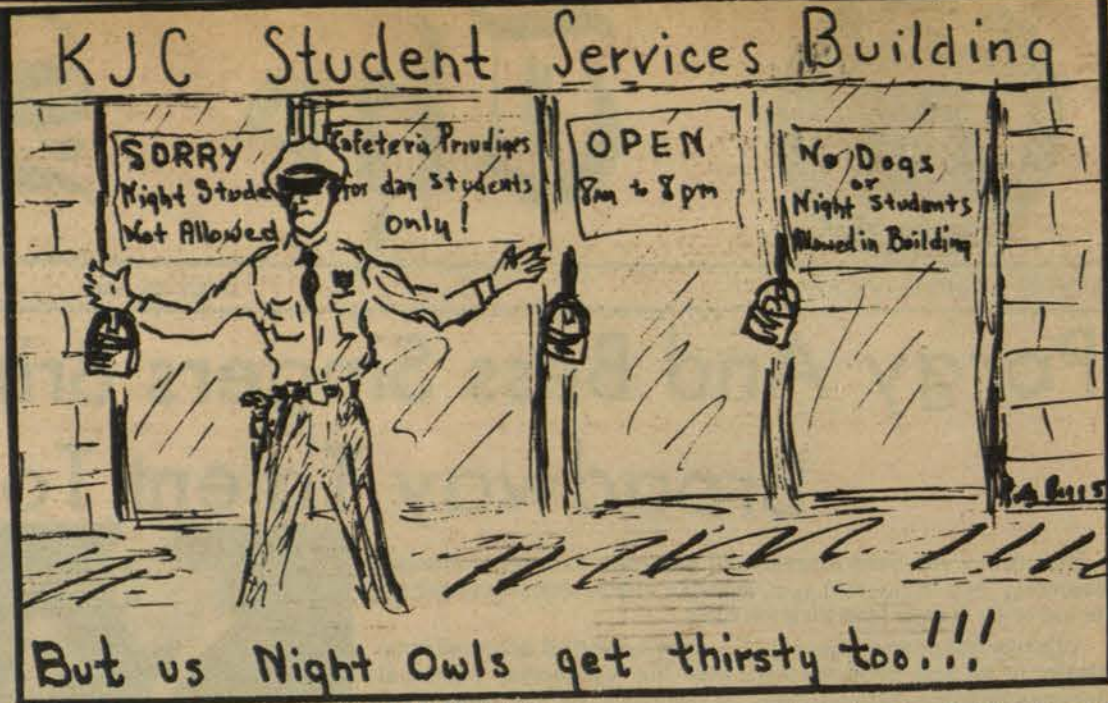 KJC Student Services Building
SORRY
Night Stude
Not Allowed
Cafeteria Priviliges
for day students
only!
OPEN
8am to 8pm
No Dogs
or
Night Students
Allowed in Building
But us Night Owls get thirsty too!!!